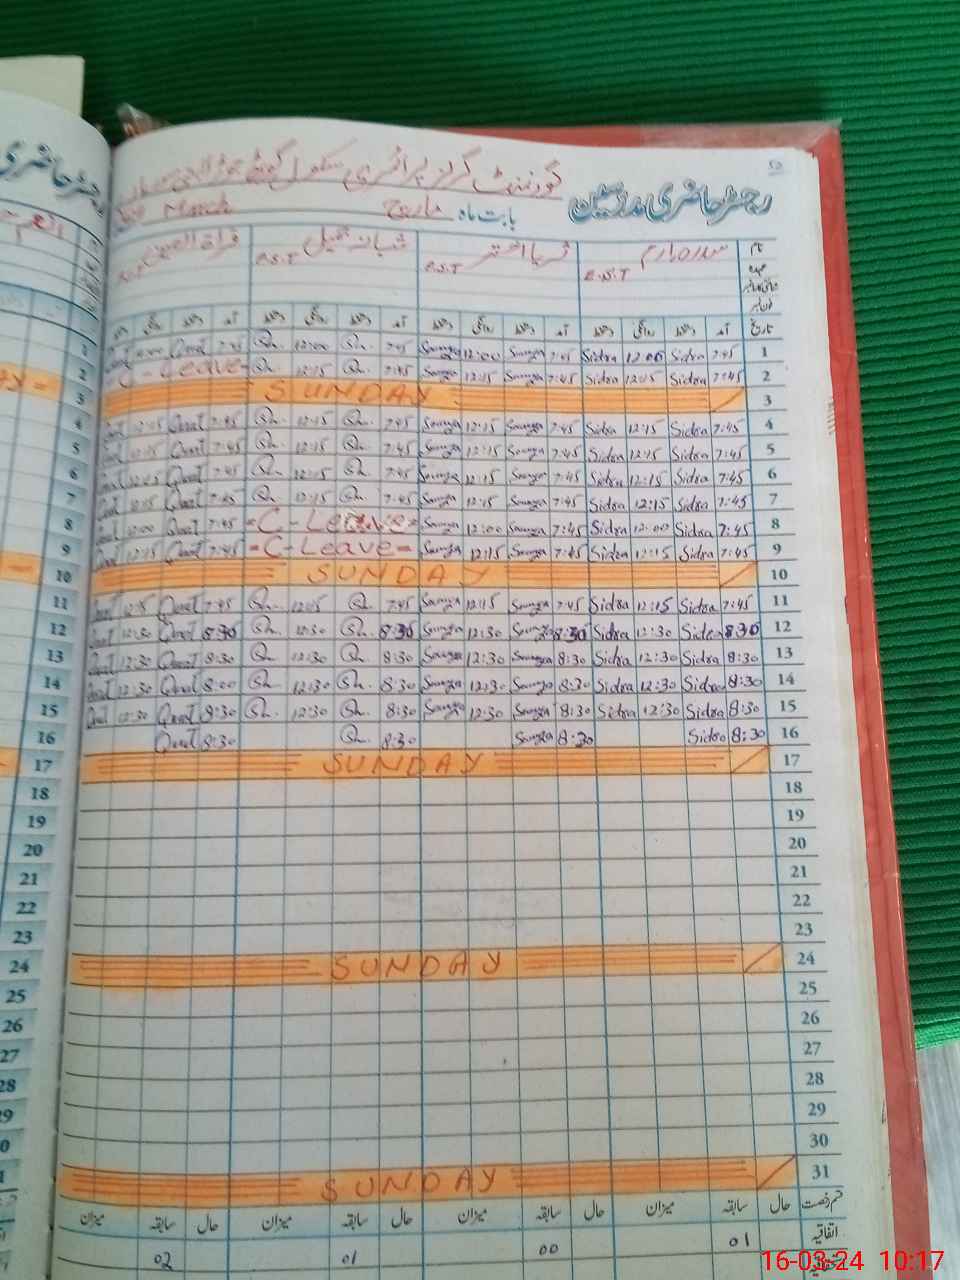 رجسٹر حاضری مدرسین
گورنمنٹ گرلز پرائمری سکول
بابت ماہ مارچ March
نام سدرہ ارم ثریا اختر شبانہ جمیل قراۃ العین
عہدہ E.S.T E.S.T E.S.T
تاریخ آمد دستخط روانگی دستخط آمد دستخط روانگی دستخط آمد دستخط روانگی دستخط آمد دستخط روانگی دستخط
Qurat 7:45 Qh. 12:00 Qh. 7:45 Surayya 12:00 Surayya 7:45 Sidra 12:00 Sidra 7:45 1
C - Leave - Qh. 12:15 Qh. 7:45 Surayya 12:15 Surayya 7:45 Sidra 12:15 Sidra 7:45 2
SUNDAY 3
12:15 Qurat 7:45 Qh. 12:15 Qh. 7:45 Surayya 12:15 Surayya 7:45 Sidra 12:15 Sidra 7:45 4
12:15 Qurat 7:45 Qh. 12:15 Qh. 7:45 Surayya 12:15 Surayya 7:45 Sidra 12:15 Sidra 7:45 5
12:15 Qurat 7:45 Qh. 12:15 Qh. 7:45 Surayya 12:15 Surayya 7:45 Sidra 12:15 Sidra 7:45 6
12:15 Qurat 7:45 Qh. 12:15 Qh. 7:45 Surayya 12:15 Surayya 7:45 Sidra 12:15 Sidra 7:45 7
12:00 Qurat 7:45 - C - Leave = Surayya 12:00 Surayya 7:45 Sidra 12:00 Sidra 7:45 8
12:15 Qurat 7:45 - C - Leave - Surayya 12:15 Surayya 7:45 Sidra 12:15 Sidra 7:45 9
SUNDAY 10
Qurat 12:15 Qurat 7:45 Qh. 12:15 Qh. 7:45 Surayya 12:15 Surayya 7:45 Sidra 12:15 Sidra 7:45 11
Qurat 12:30 Qurat 8:30 Qh. 12:30 Qh. 8:30 Surayya 12:30 Surayya 8:30 Sidra 12:30 Sidra 8:30 12
Qurat 12:30 Qurat 8:30 Qh. 12:30 Qh. 8:30 Surayya 12:30 Surayya 8:30 Sidra 12:30 Sidra 8:30 13
Qurat 12:30 Qurat 8:00 Qh. 12:30 Qh. 8:30 Surayya 12:30 Surayya 8:30 Sidra 12:30 Sidra 8:30 14
Qurat 12:30 Qurat 8:30 Qh. 12:30 Qh. 8:30 Surayya 12:30 Surayya 8:30 Sidra 12:30 Sidra 8:30 15
Qurat 8:30 Qh. 8:30 Surayya 8:30 Sidra 8:30 16
SUNDAY 17
18
19
20
21
22
23
SUNDAY 24
25
26
27
28
29
30
SUNDAY 31
قسم رخصت حال سابقہ میزان حال سابقہ میزان حال سابقہ میزان حال سابقہ میزان
اتفاقیہ 01 00 01 02
16-03-24 10:17